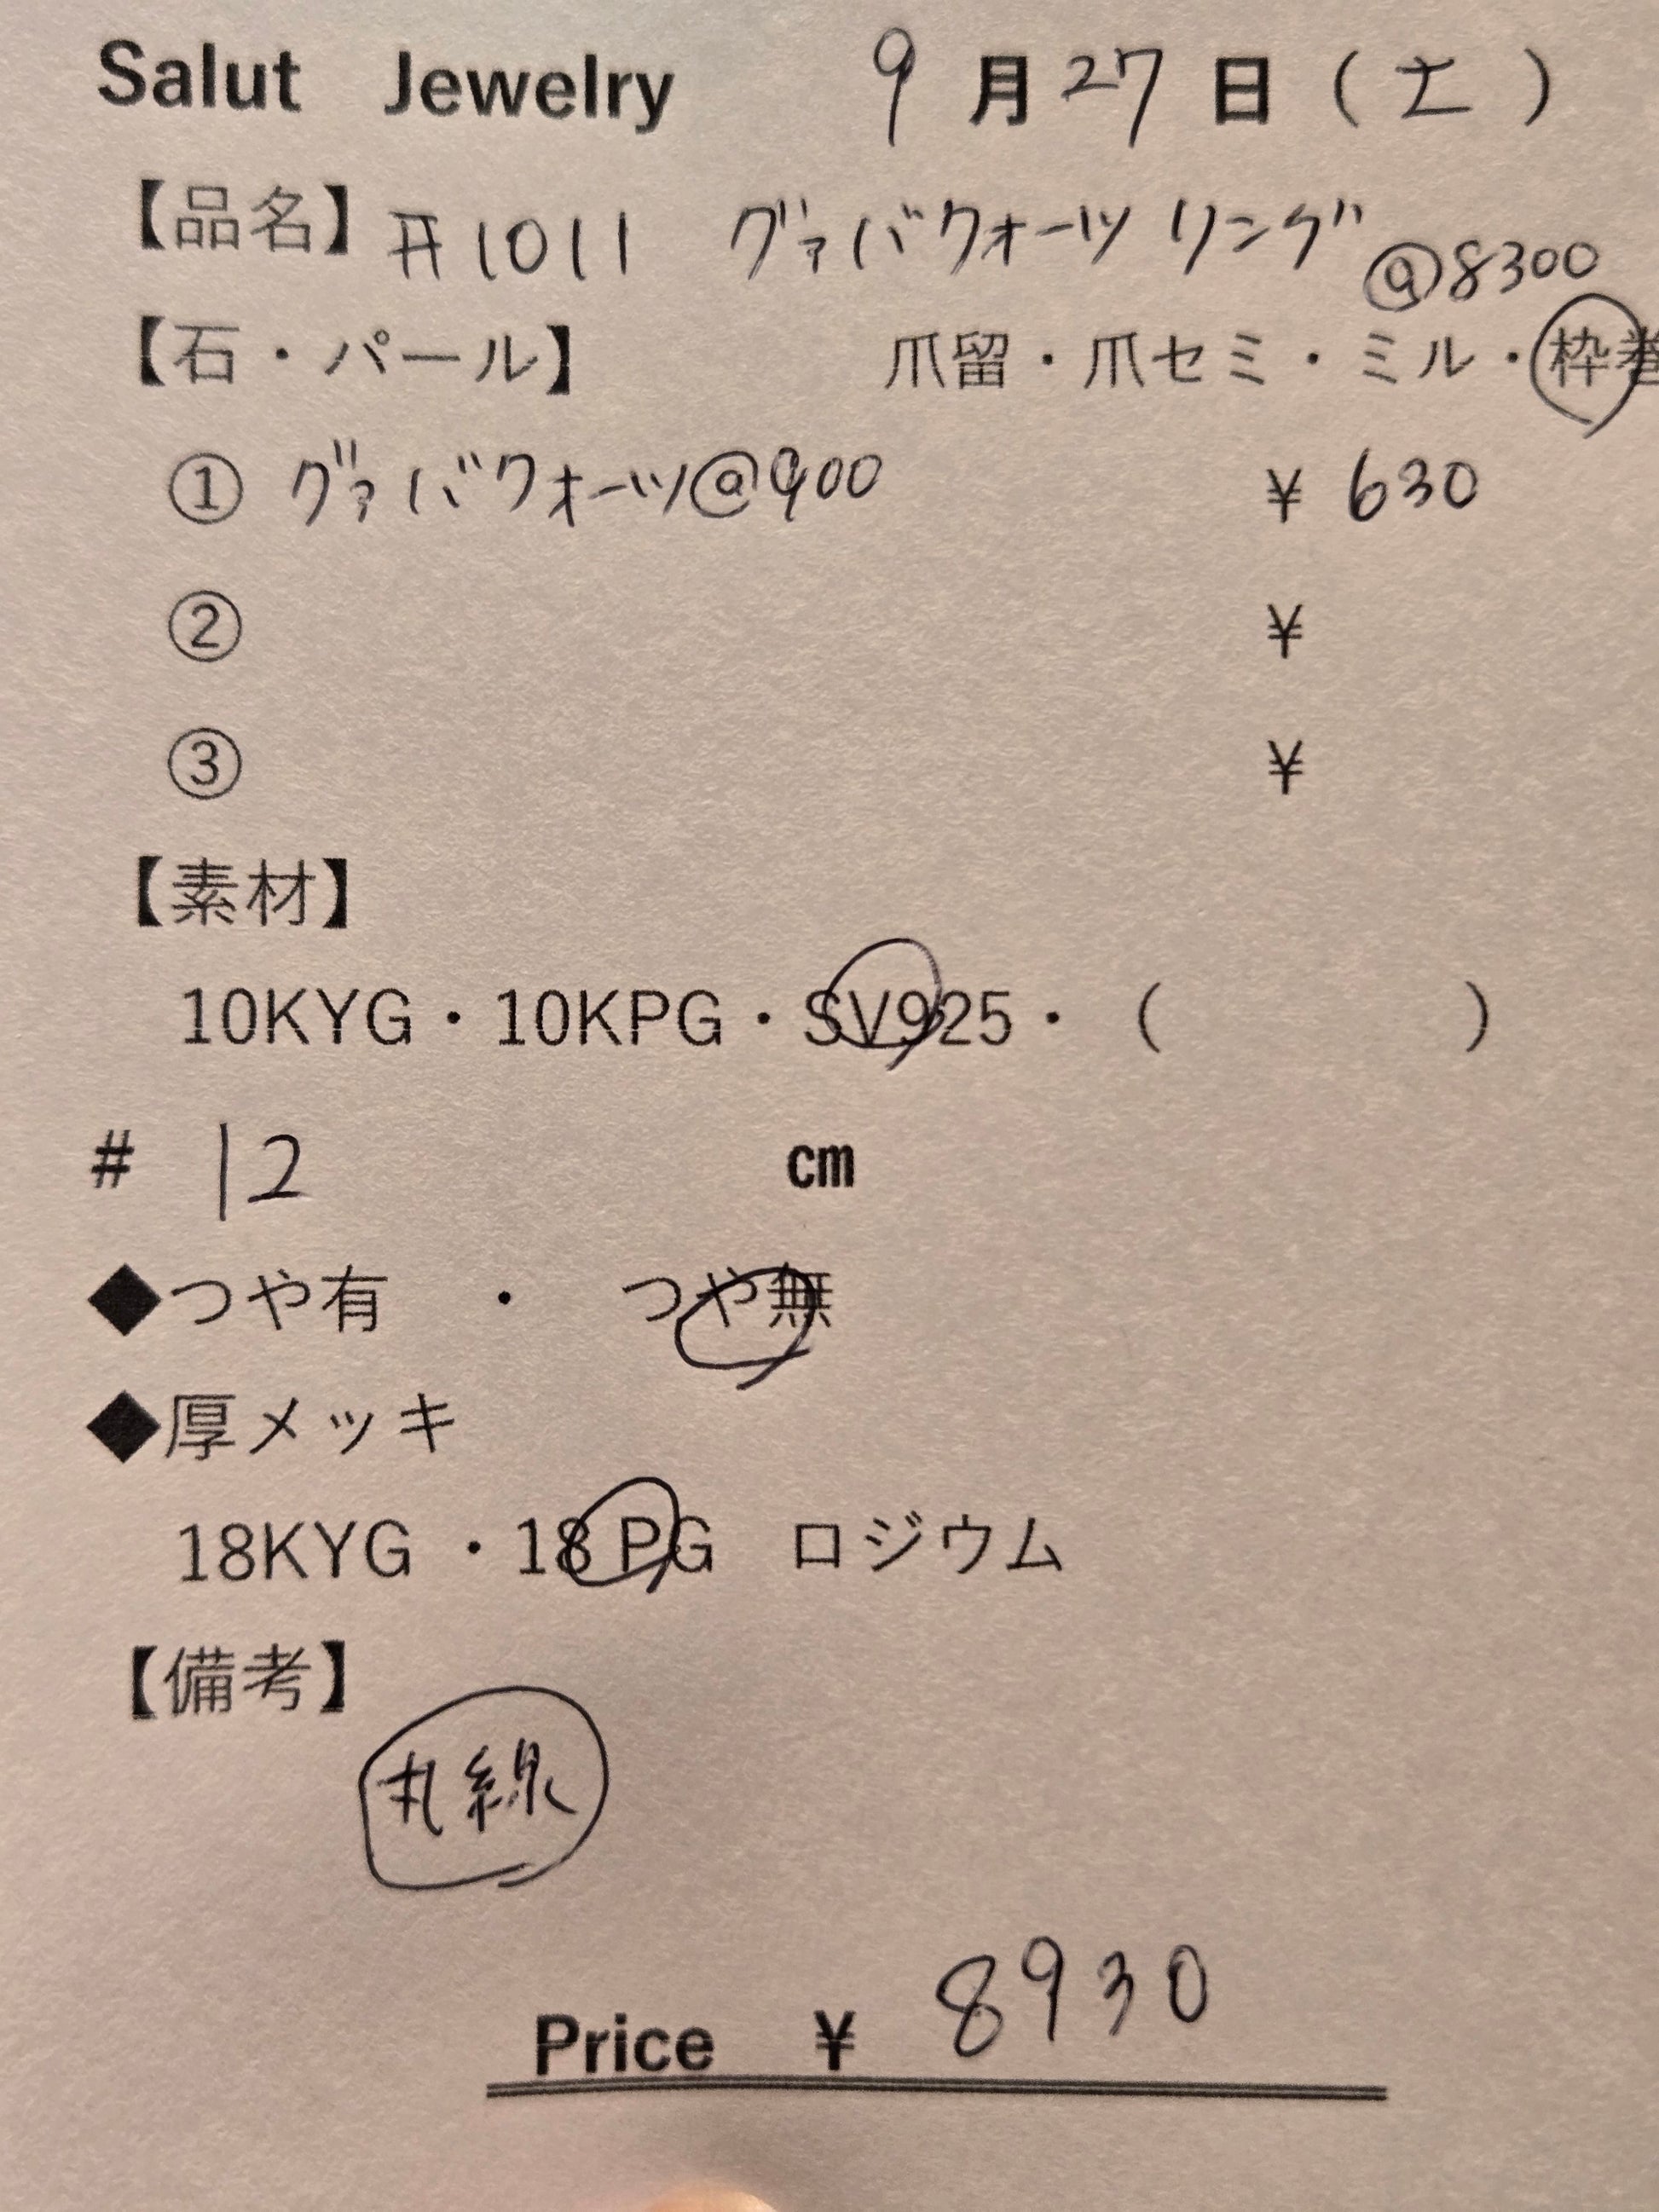 Salut Jewelry 9月27日(土)
【品名】#1011 グァバクォーツ リング @8300
【石・パール】 爪留・爪セミ・ミル・枠巻
① グァバクォーツ@900 ¥630
② ¥
③ ¥
【素材】
10KYG・10KPG・SV925・( )
# 12 cm
◆つや有 ・ つや無
◆厚メッキ
18KYG ・18 PG ロジウム
【備考】
丸線
Price ¥ 8930